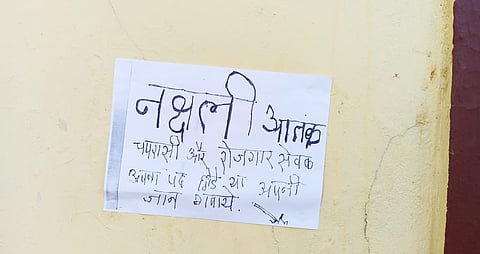 नक्षली आतंक
चपरासी और रोजगार सेवक
अपना पद छोडे या अपनी
जान गवाये.